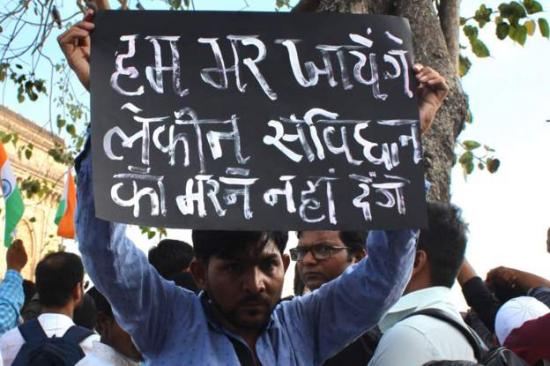 हम मर जायेंगे
लेकीन संविधान
को मरने नहीं देंगे